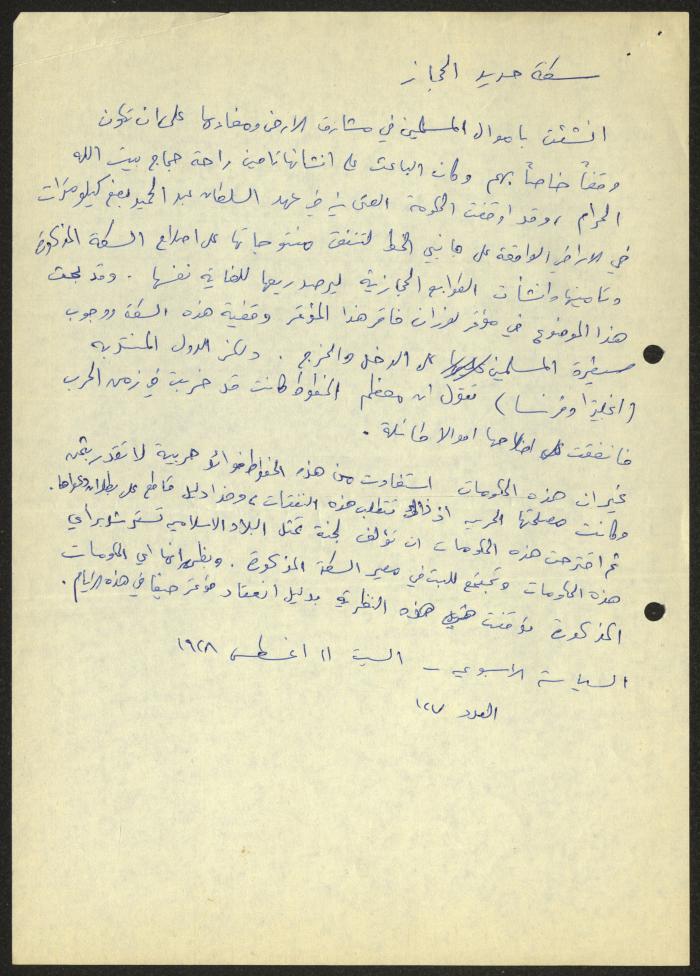 سكة حديد الحجاز
انشئت باموال المسلمين في مشارق الارض ومغاربها على ان تكون
وقفاً خاصاً بهم وكان الباعث على انشائها تامين راحة حجاج بيت الله
الحرام ، وقد اوقفت الحكومة العثمانية في عهد السلطان عبد الحميد بضع كيلومترات
في الاراضي الواقعة على جانبي الخط لتنفق منتوجاتها على اصلاح السكة المذكورة
وتامينها وانشأت الطوابع الحجازية ليرصد ريعها للغاية نفسها . وقد بحث
هذا الموضوع في مؤتمر لوزان فاقر هذا المؤتمر وقفية هذه السكة ووجوب
سيطرة المسلمين عليها على الدخل والخرج . ولكن الدول المنتدبة
(انجلترا وفرنسا) تقول ان معظم الخطوط كانت قد خربت في زمن الحرب
فانفقت على اصلاحها اموالا طائلة .
غير ان هذه الحكومات استفادت من هذه الخطوط فوائد حربية لا تقدر بثمن
وكانت مصلحتها الحربية اذ ذاك تتطلب هذه النفقات ، وهذا دليل قاطع على بطلان دعواها .
ثم اقترحت هذه الحكومات ان تؤلف لجنة تمثل البلاد الاسلامية تستشير براي
هذه الحكومات وتجتمع للبت في مصير السكة المذكورة . ويظهر انها اي الحكومات
المذكورة توقفت هذه النظرية بدليل انعقاد مؤتمر حيفا في هذه الايام .
السياسة الاسبوعية – السبت ١١ اغسطس ١٩٢٨
العدد ١٢٧